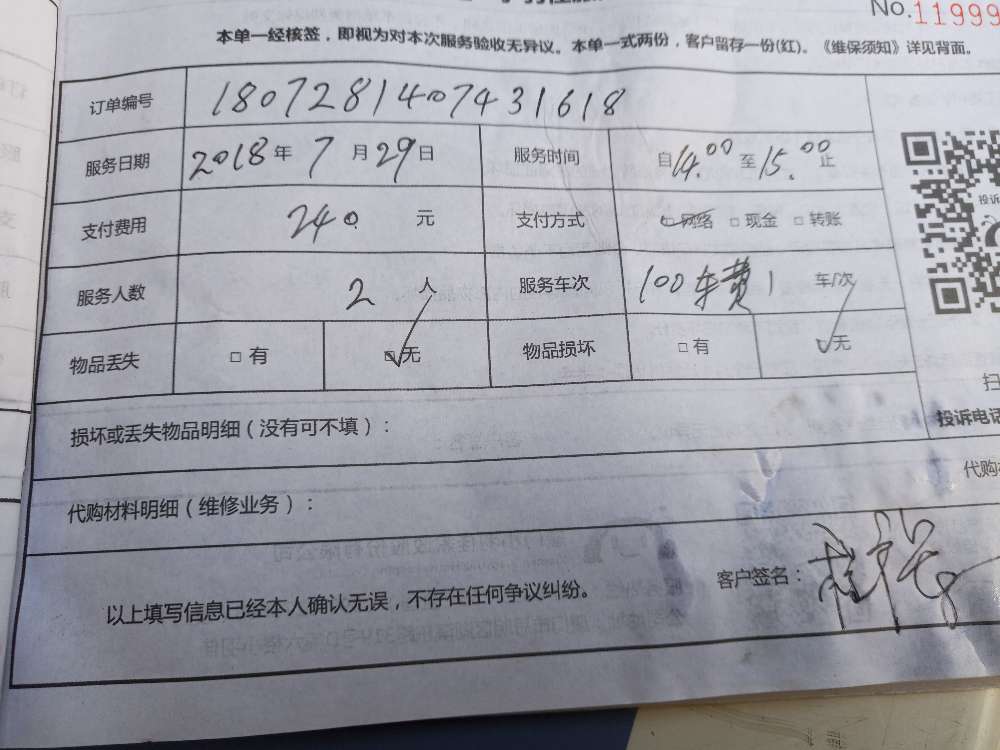 No.11999
本单一经核签，即视为对本次服务验收无异议。本单一式两份，客户留存一份(红)。《维保须知》详见背面。
订单编号 1807281407431618
服务日期 2018年7月29日 服务时间 自14.00至15.00止
支付费用 240 元 支付方式 □网络 □现金 □转账
服务人数 2 人 服务车次 100车费1 车/次
物品丢失 □有 □无 物品损坏 □有 □无
投诉
扫
投诉电话
损坏或丢失物品明细（没有可不填）：
代购材料明细（维修业务）：
代购
以上填写信息已经本人确认无误，不存在任何争议纠纷。
客户签名：